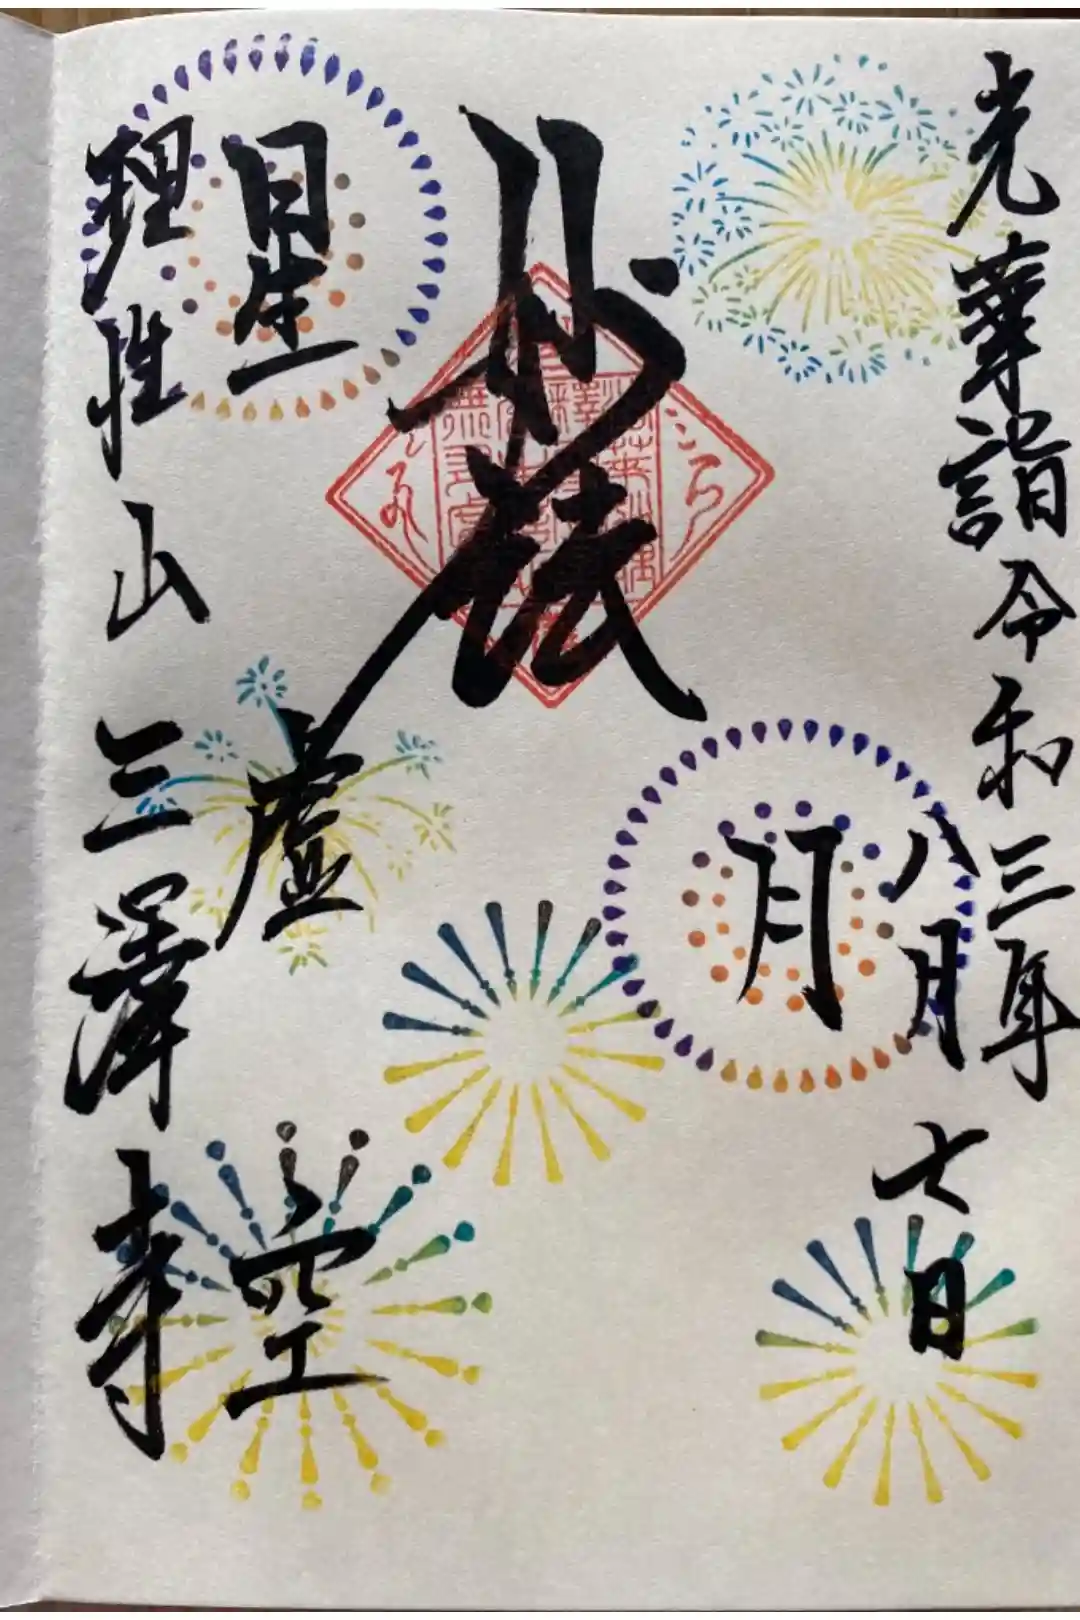 光華詣令和三年
八月七日
妙法
月
星
虚空
理性山三澤寺